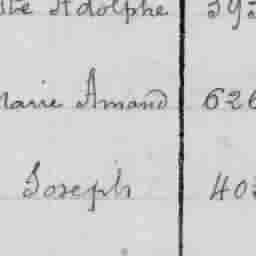 Adolphe
Marie Amand 626
Joseph 40